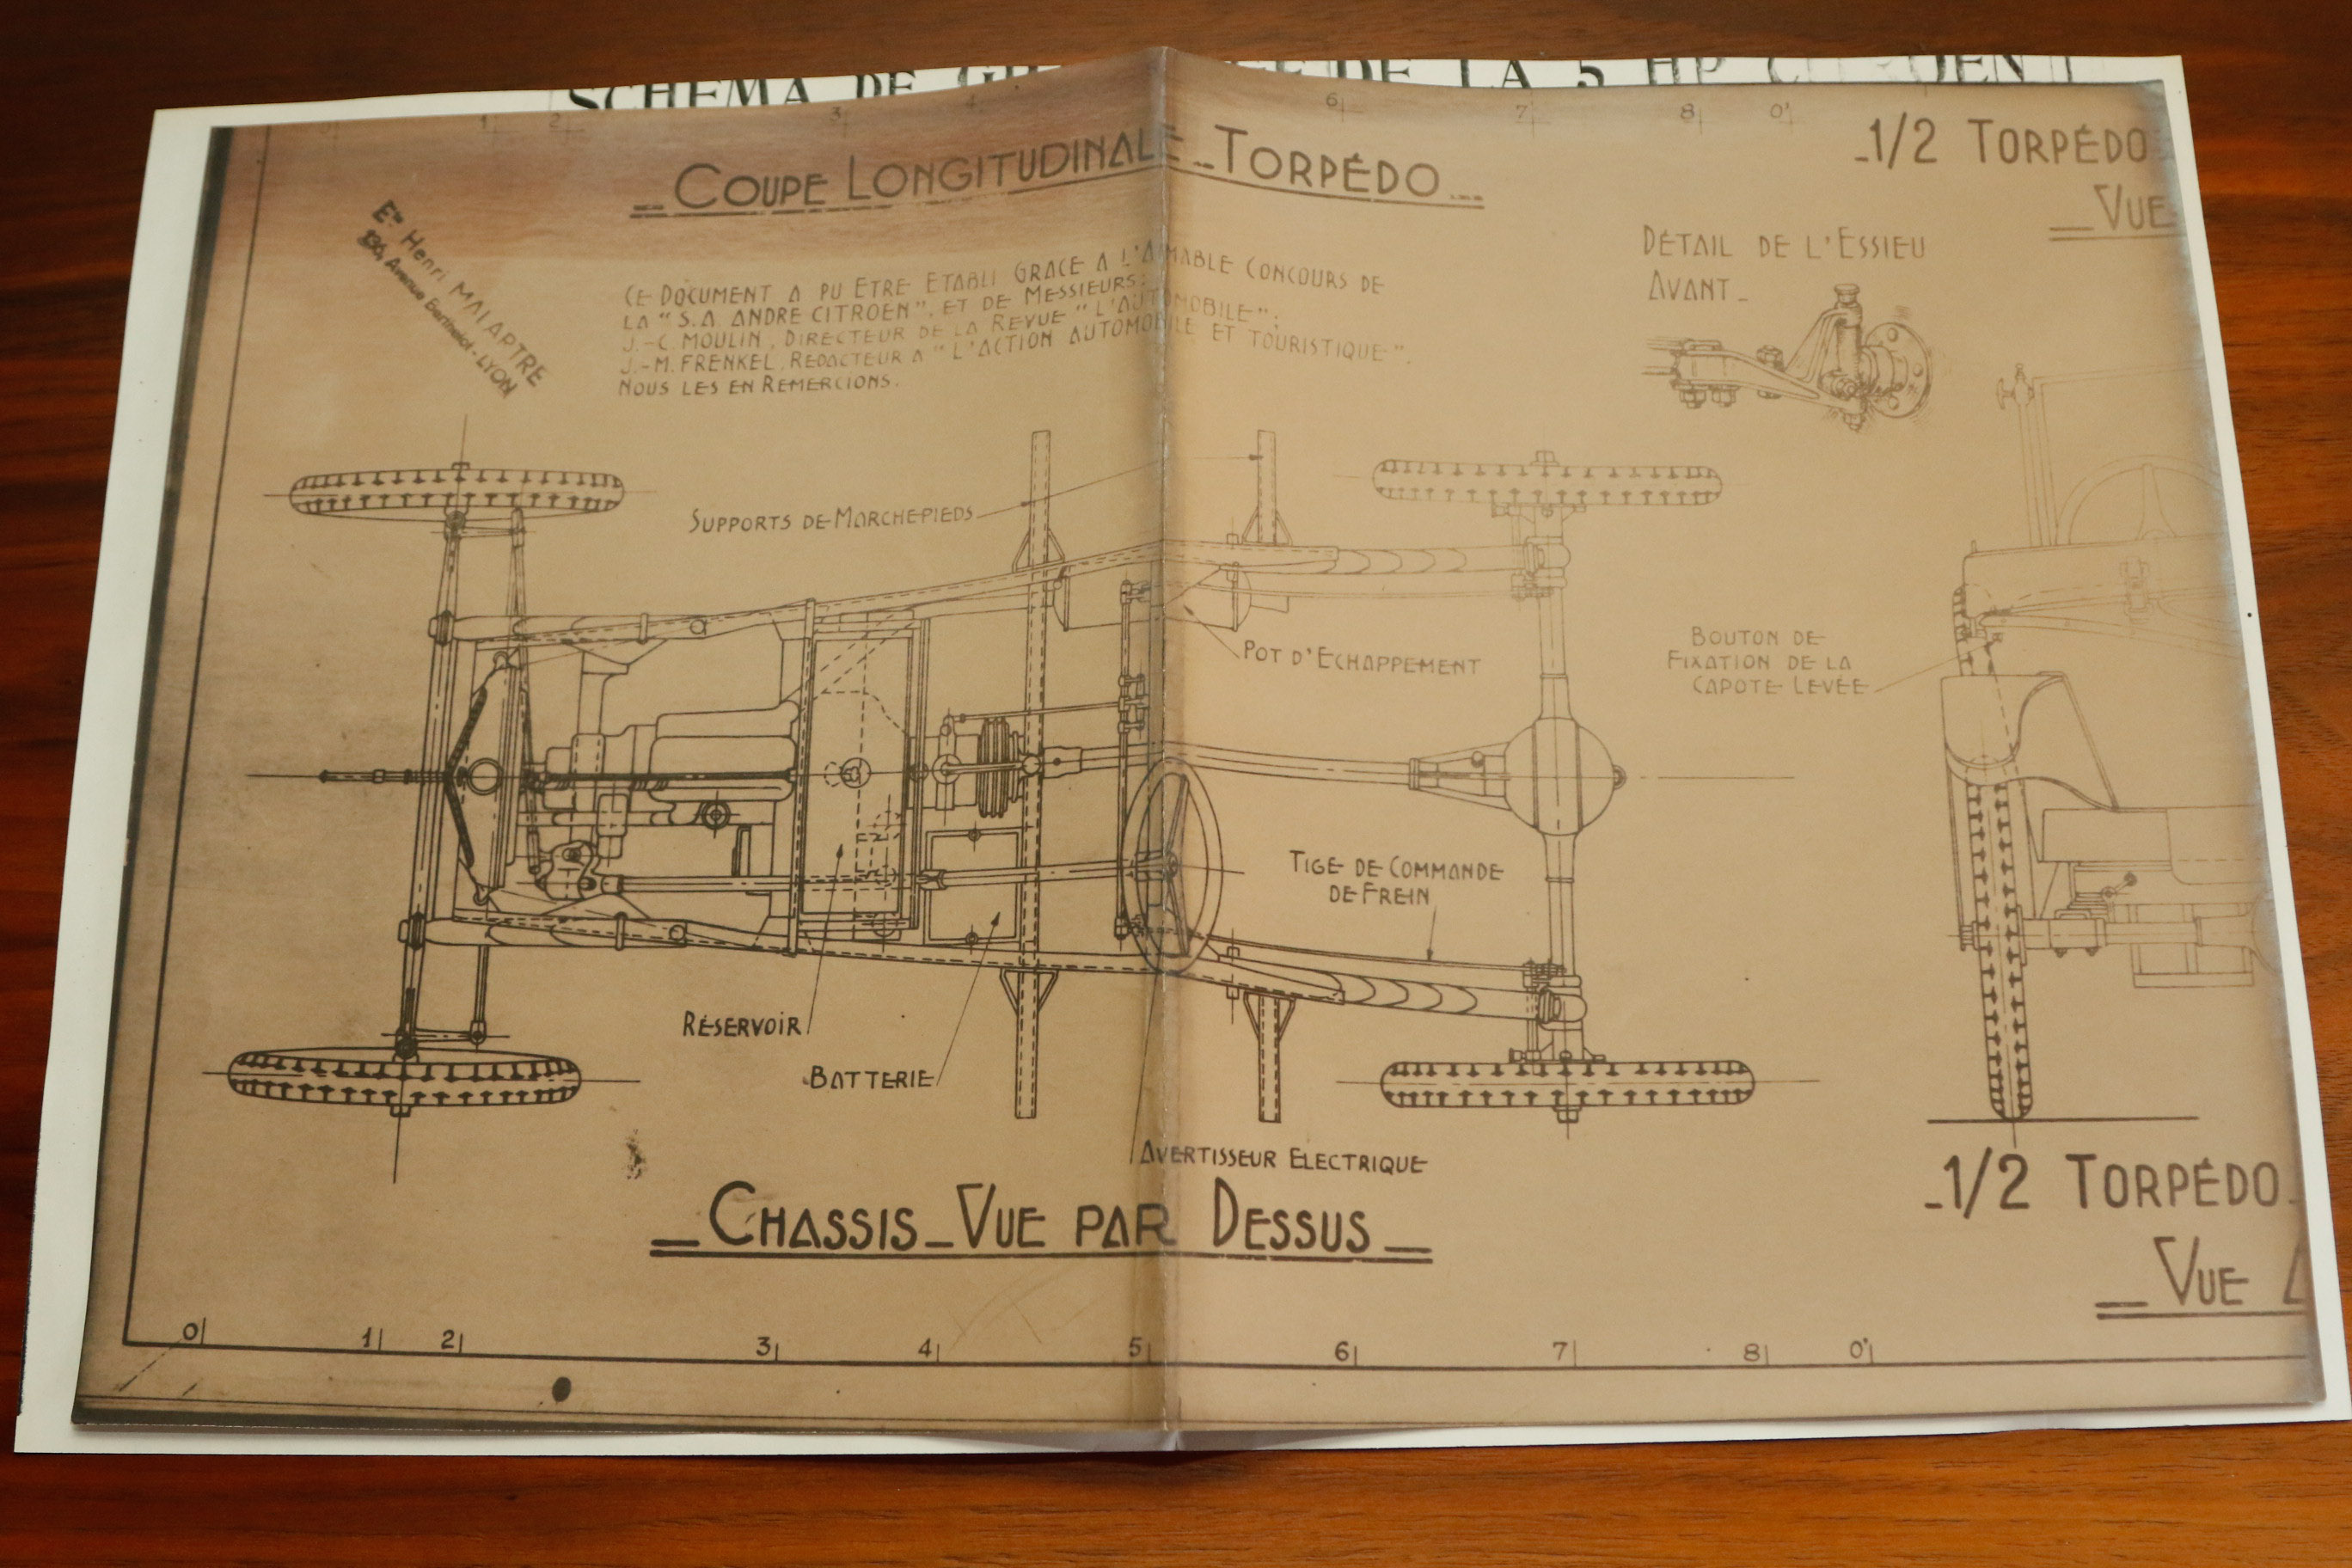 SCHEMA DE DE LA 5 HP
1 2 3 4 6 7 8 0'
_ COUPE LONGITUDINALE _ TORPÉDO _
_1/2 TORPÉDO
_ VUE
Ets Henri MALARTRE
Avenue Berthelot - LYON
CE DOCUMENT A PU ETRE ETABLI GRACE A L'AIMABLE CONCOURS DE
LA "S.A. ANDRE CITROEN". ET DE MESSIEURS:
J.-C. MOULIN, DIRECTEUR DE LA REVUE "L'AUTOMOBILE";
J.-M. FRENKEL, REDACTEUR A "L'ACTION AUTOMOBILE ET TOURISTIQUE".
NOUS LES EN REMERCIONS.
DÉTAIL DE L'ESSIEU
AVANT _
SUPPORTS DE MARCHEPIEDS
POT D'ECHAPPEMENT
BOUTON DE
FIXATION DE LA
CAPOTE LEVÉE
TIGE DE COMMANDE
DE FREIN
RÉSERVOIR
BATTERIE
AVERTISSEUR ELECTRIQUE
_ CHASSIS _ VUE PAR DESSUS _
_1/2 TORPÉDO_
_ VUE
0 1 2 3 4 5 6 7 8 0'